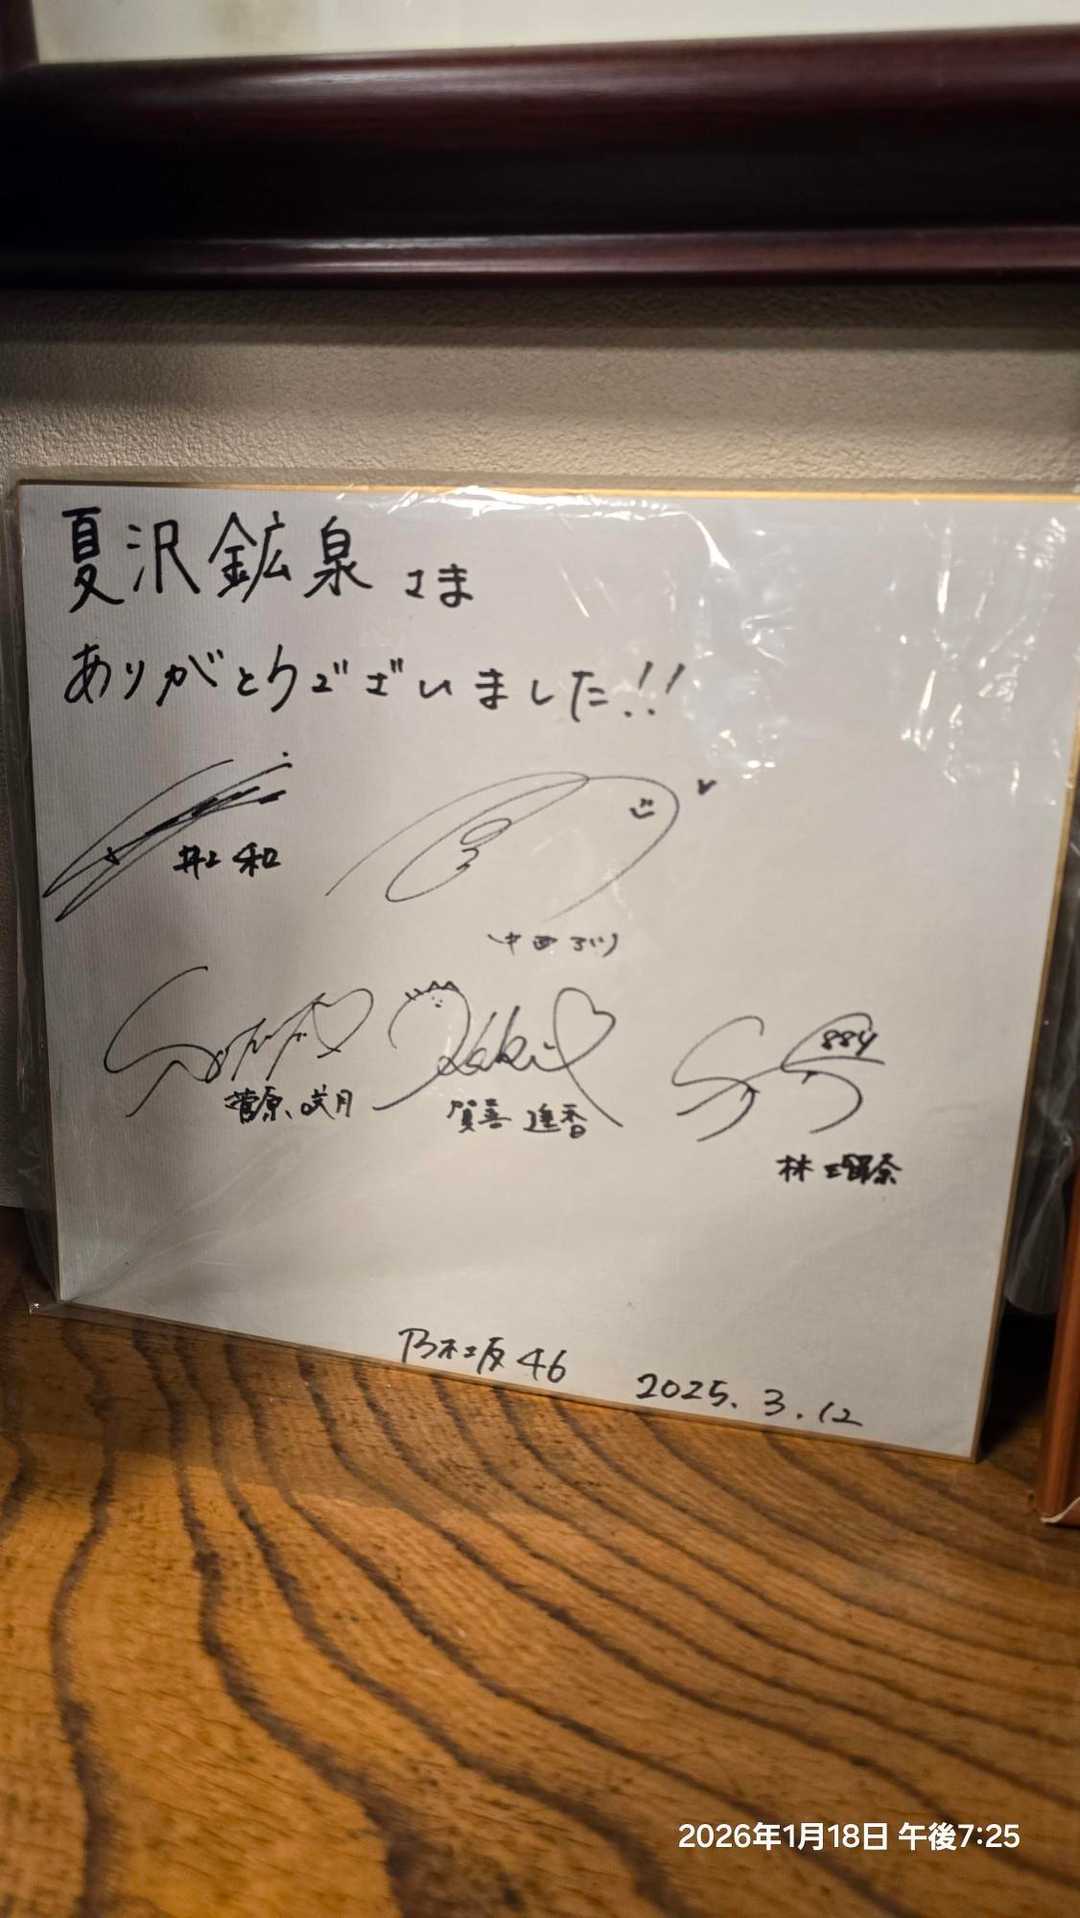 夏沢鉱泉さま
ありがとうございました!!
井上 和
中西アルノ
菅原咲月
Kaki
賀喜 遥香
884
林 瑠奈
乃木坂46 2025.3.12
2026年1月18日 午後7:25